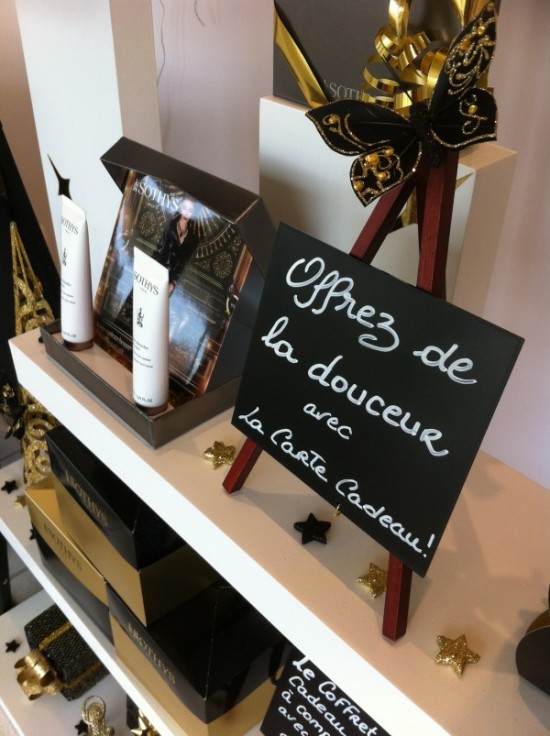 SOTHYS
SOTHYS
SOTHYS
SOTHYS
Offrez de
la douceur
avec
La Carte Cadeau!
SOTHYS
SOTHYS
Le Coffret
Cadeau
à comp
avec